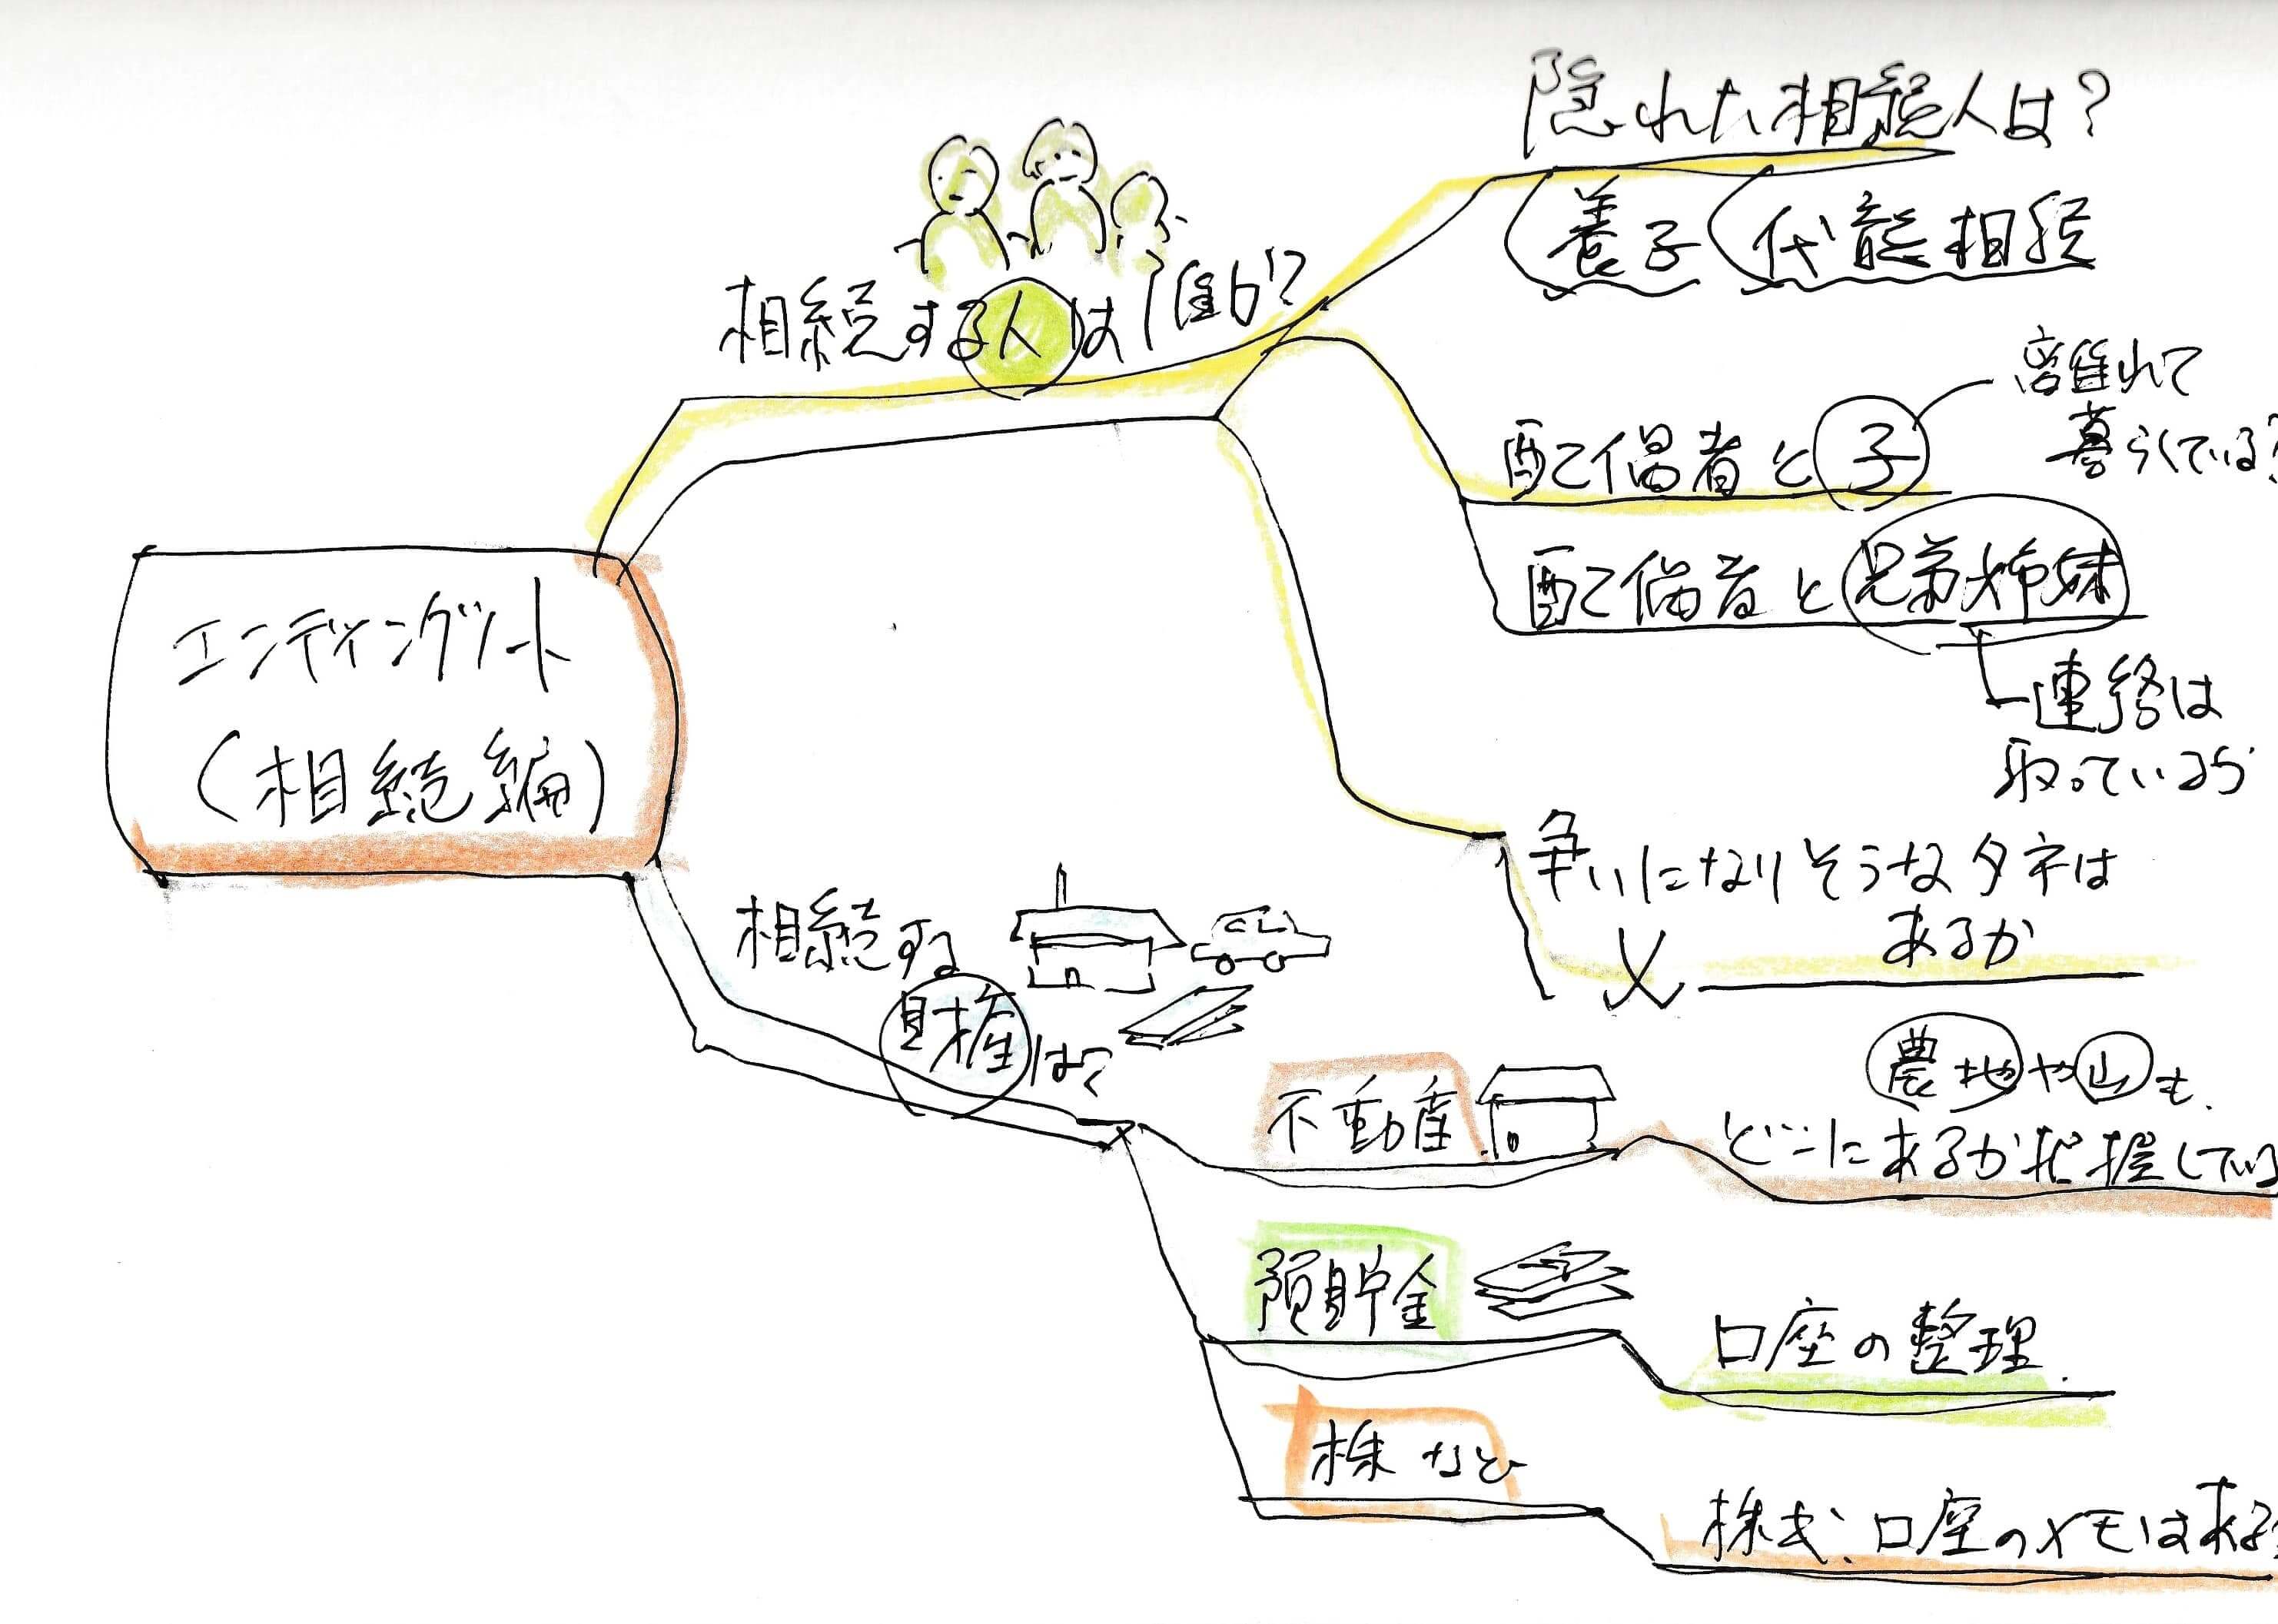 エンディングノート
(相続編)
相続する人は誰か?
隠れた相続人は?
養子 代襲相続
配偶者と子
離れて
暮らしている?
配偶者と兄弟姉妹
連絡は
取っているか
争いになりそうなタネは
あるか
相続する
財産は?
不動産
農地や山も、
どこにあるか把握してい
預貯金
口座の整理
株など
株式、口座のメモはある